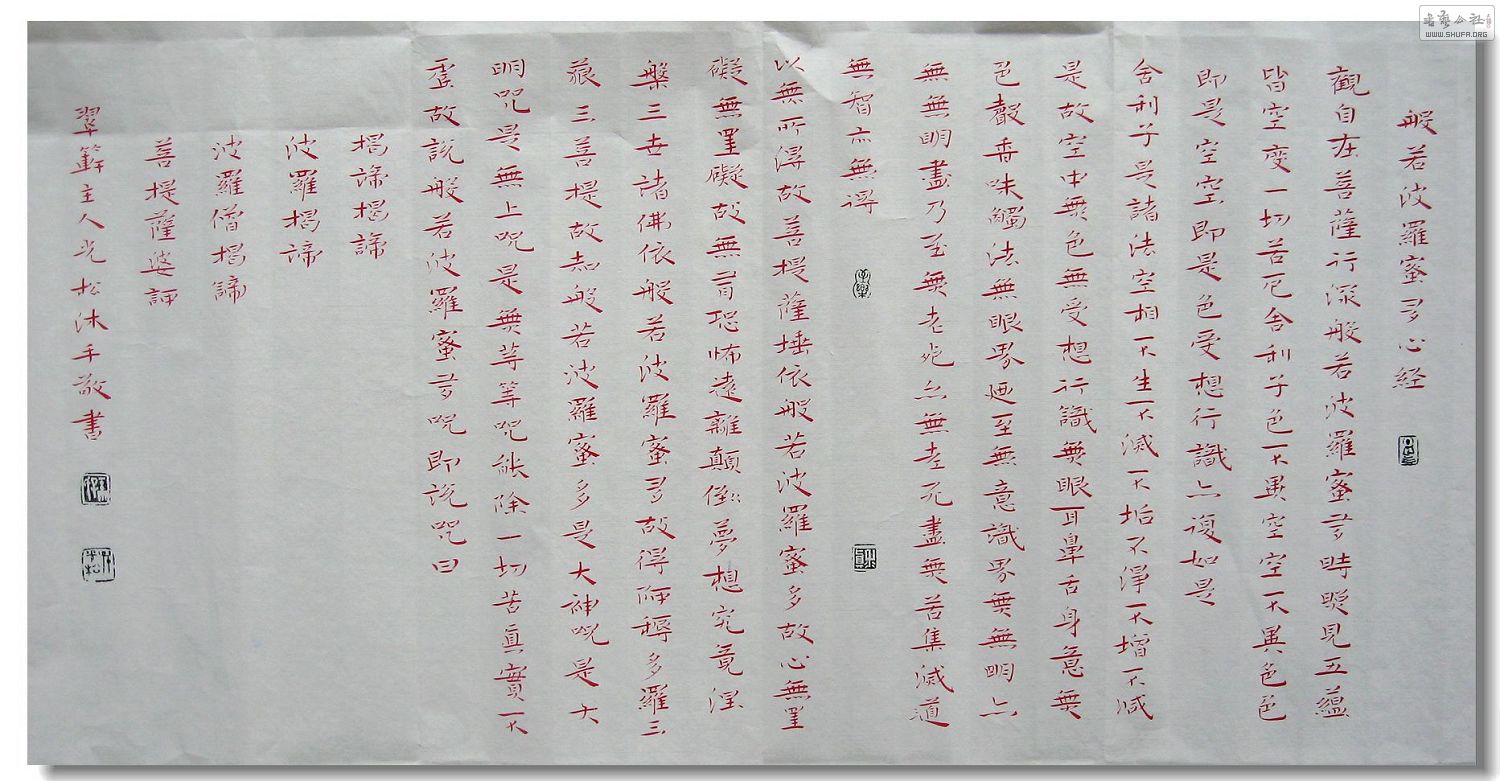 般若波羅蜜多心经
觀自在菩薩行深般若波羅蜜多時照見五蘊
皆空度一切苦厄舍利子色不異空空不異色色
即是空空即是色受想行識亦復如是
舍利子是諸法空相不生不滅不垢不淨不增不減
是故空中無色無受想行識無眼耳鼻舌身意無
色聲香味觸法無眼界廼至無意識界無無明亦
無無明盡乃至無老死亦無老死盡無苦集滅道
無智亦無得
以無所得故菩提薩埵依般若波羅蜜多故心無罣
礙無罣礙故無有恐怖遠離顛倒夢想究竟涅
槃三世諸佛依般若波羅蜜多故得阿耨多羅三
藐三菩提故知般若波羅蜜多是大神咒是大
明咒是無上咒是無等等咒能除一切苦真實不
虛故說般若波羅蜜多咒即說咒曰
揭諦揭諦
波羅揭諦
波羅僧揭諦
菩提薩婆訶
翠軒主人光松沐手敬書
書藝公社
WWW.SHUFA.ORG